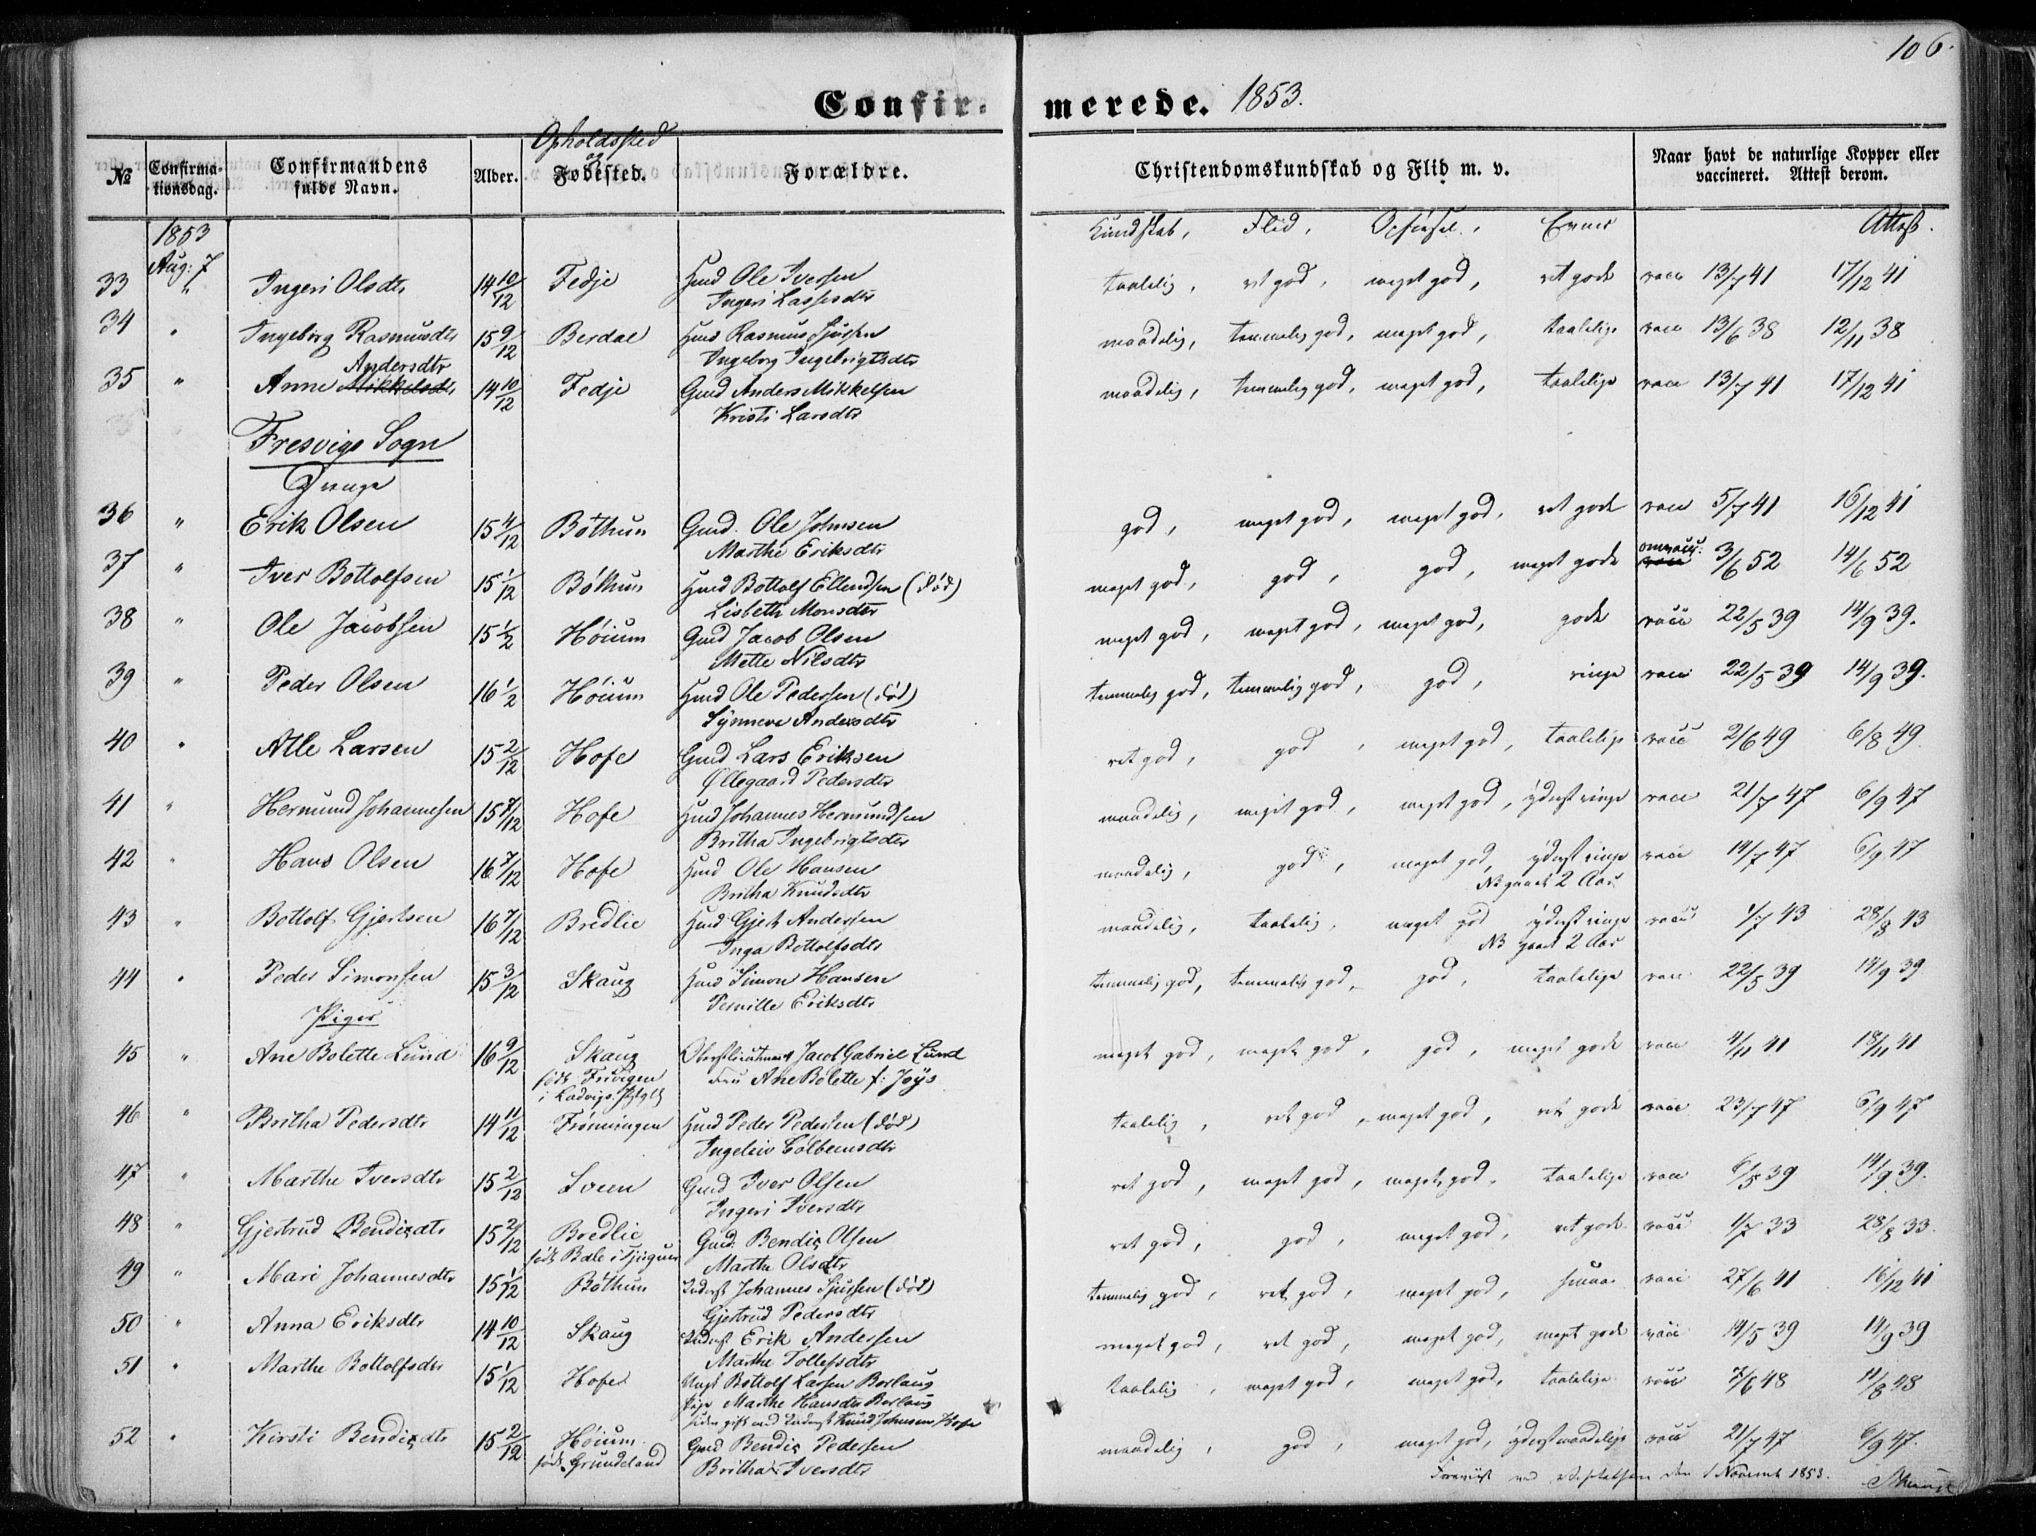 106.
Confir- merede. 1853.
№ Confirma-tionsdag. Confirmandens fulde Navn. Alder. Opholdssted og Fødested. Forældre. Christendomskundskab og Flid m. v. Naar havt de naturlige Kopper eller vaccineret. Attest derom.
1853 Kundskab, Flid, Opførsel, Evner Attest.
Aug: 7
33 " Ingeri Olsdtr 14 10/12 Fedje Huusd Ole Iversen taalelig, ret god, meget god, ret gode vacc 13/7 41 17/12 41
Ingeri Lassesdtr
34 " Ingeborg Rasmusdtr 15 9/12 Berdal Huusd Rasmus Sjursen maadelig, temmelig god, meget god, taalelige vacc 13/6 38 12/11 38
Ingeborg Ingebrigtsdtr
Andersdtr
35 " Anne Mikkelsdtr 14 10/12 Fedje Gmd Anders Mikkelsen maadelig, temmelig god, meget god, taalelige vacc 13/7 41 17/12 41
Kristi Larsdtr
Fresvigs Sogn
Drenge
36 " Erik Olsen 15 4/12 Bøthun Gmd. Ole Johnsen god, meget god, meget god, ret gode vacc 5/7 41 16/12 41
Marthe Eriksdtr
37 " Iver Bottolfsen 15 1/12 Bøthun Huusd Bottolf Ellendsen (død) meget god, god, god, meget gode omvacc. vacc 3/6 52 14/6 52
Lisbeth Monsdtr
38 " Ole Jacobsen 15 1/2 Høium Gmd Jacob Olsen meget god, meget god, meget god, gode vacc 22/5 39 14/9 39.
Mette Nilsdtr
39 " Peder Olsen 16 1/2 Høium Huusd Ole Pedersen (død) temmelig god, temmelig god, god, ringe vacc 22/5 39 14/9 39.
Synneva Andersdtr
40 " Atle Larsen 15 2/12 Hofe Gmd Lars Eriksen ret god, god, meget god, taalelige vacc 2/6 49 6/8 49.
Øllegaard Pedersdtr
41 " Hermund Johannesen 15 8/12 Hofe Huusd Johannes Hermundsen maadelig, meget god, meget god, yderst ringe vacc 21/7 47 6/9 47
Britha Ingebrigtsdtr
42 " Hans Olsen 16 7/12 Hofe Huusd Ole Hansen maadelig, god, meget god, yderst ringe vacc 14/7 47 6/9 47
Britha Knudsdtr NB gaaet 2 Aar
43 " Bottolf Gjertsen 16 7/12 Bredlie Huusd Gjert Andersen maadelig, taalelig, meget god yderst ringe vacc 1/7 43 28/8 43
Inga Bottolfsdtr NB gaaet 2 Aar
44 " Peder Simonsen 15 3/12 Skaug Huusd Simon Hansen temmelig god, temmelig god, god, taalelige vacc 22/5 39 14/9 39
Pernille Eriksdtr
Piger
45 " Ane Bolette Lund 16 9/12 Skaug Oberstlieutnant Jacob Gabriel Lund meget god, meget god, god, meget gode vacc 4/11 41 18/11 41
født i Ladvigs Fru Ane Bolette f: Joys
46 " Britha Pedersdtr 14 11/12 Frønningen Huusd Peder Pedersen (død) taalelig, ret god, meget god, ret gode vacc 23/7 47 6/9 47
Ingeleiv Colbeensdtr
47 " Marthe Iversdtr 15 2/12 Sveen Gmd Iver Olsen ret god, meget god, meget god, taalelige vacc 6/5 39 14/9 39.
Ingeri Iversdtr
48 " Gjertrud Bendixdtr 15 2/12 Bredlie Gmd. Bendix Olsen ret god, god, meget god, ret gode vacc 1/7 33 28/8 33.
født Bale i Marthe Olsdtr
49 " Mari Johannesdtr 15 1/12 Bøthun Inderst Johannes Sjursen (død) temmelig god, ret god, meget god, smaa vacc 27/6 41 16/12 41
Gjertrud Pedersdtr
50 " Anna Eriksdtr 14 10/12 Skaug Inderst Erik Andersen meget god, ret god, meget god, meget gode vacc 14/5 39 14/9 39
Marthe Tollefsdtr
51 " Marthe Bottolfsdtr 15 1/12 Hofe Ungk Bottolf Larsen Borlaug taalelig, meget god, meget god, taalelige vacc 7/6 48 11/8 48
Pige Marthe Hansdtr Borlaug
siden gift med Inderst Knud Johnsen Hofe
52 " Kirsti Bendixdtr 15 2/12 Høium Gmd Bendix Pedersen maadelig, god, meget god, yderst maadelige vacc 21/7 47 6/9 47.
født Grundeland Britha Iversdtr
Foreviist ved Visitatsen den 1 Novembr 1853.